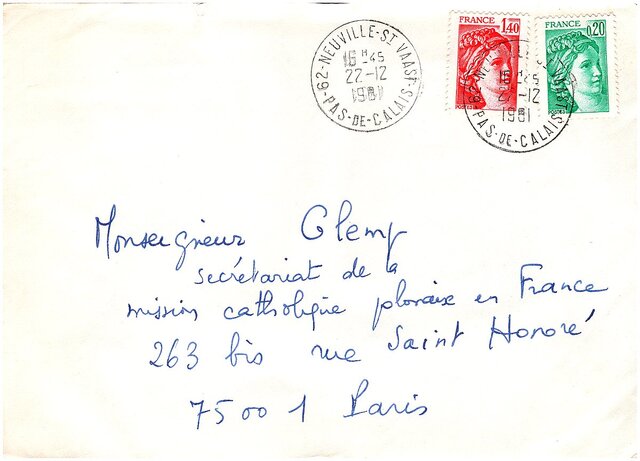 62-NEUVILLE-ST VAAST
16H45
22-12
1981
PAS-DE-CALAIS
FRANCE
1,40
FRANCE
0,20
16 45
22-12
1981
PAS-DE-CALAIS
Monseigneur Glemp
secrétariat de la
mission catholique polonaise en France
263 bis rue Saint Honoré
75001 Paris